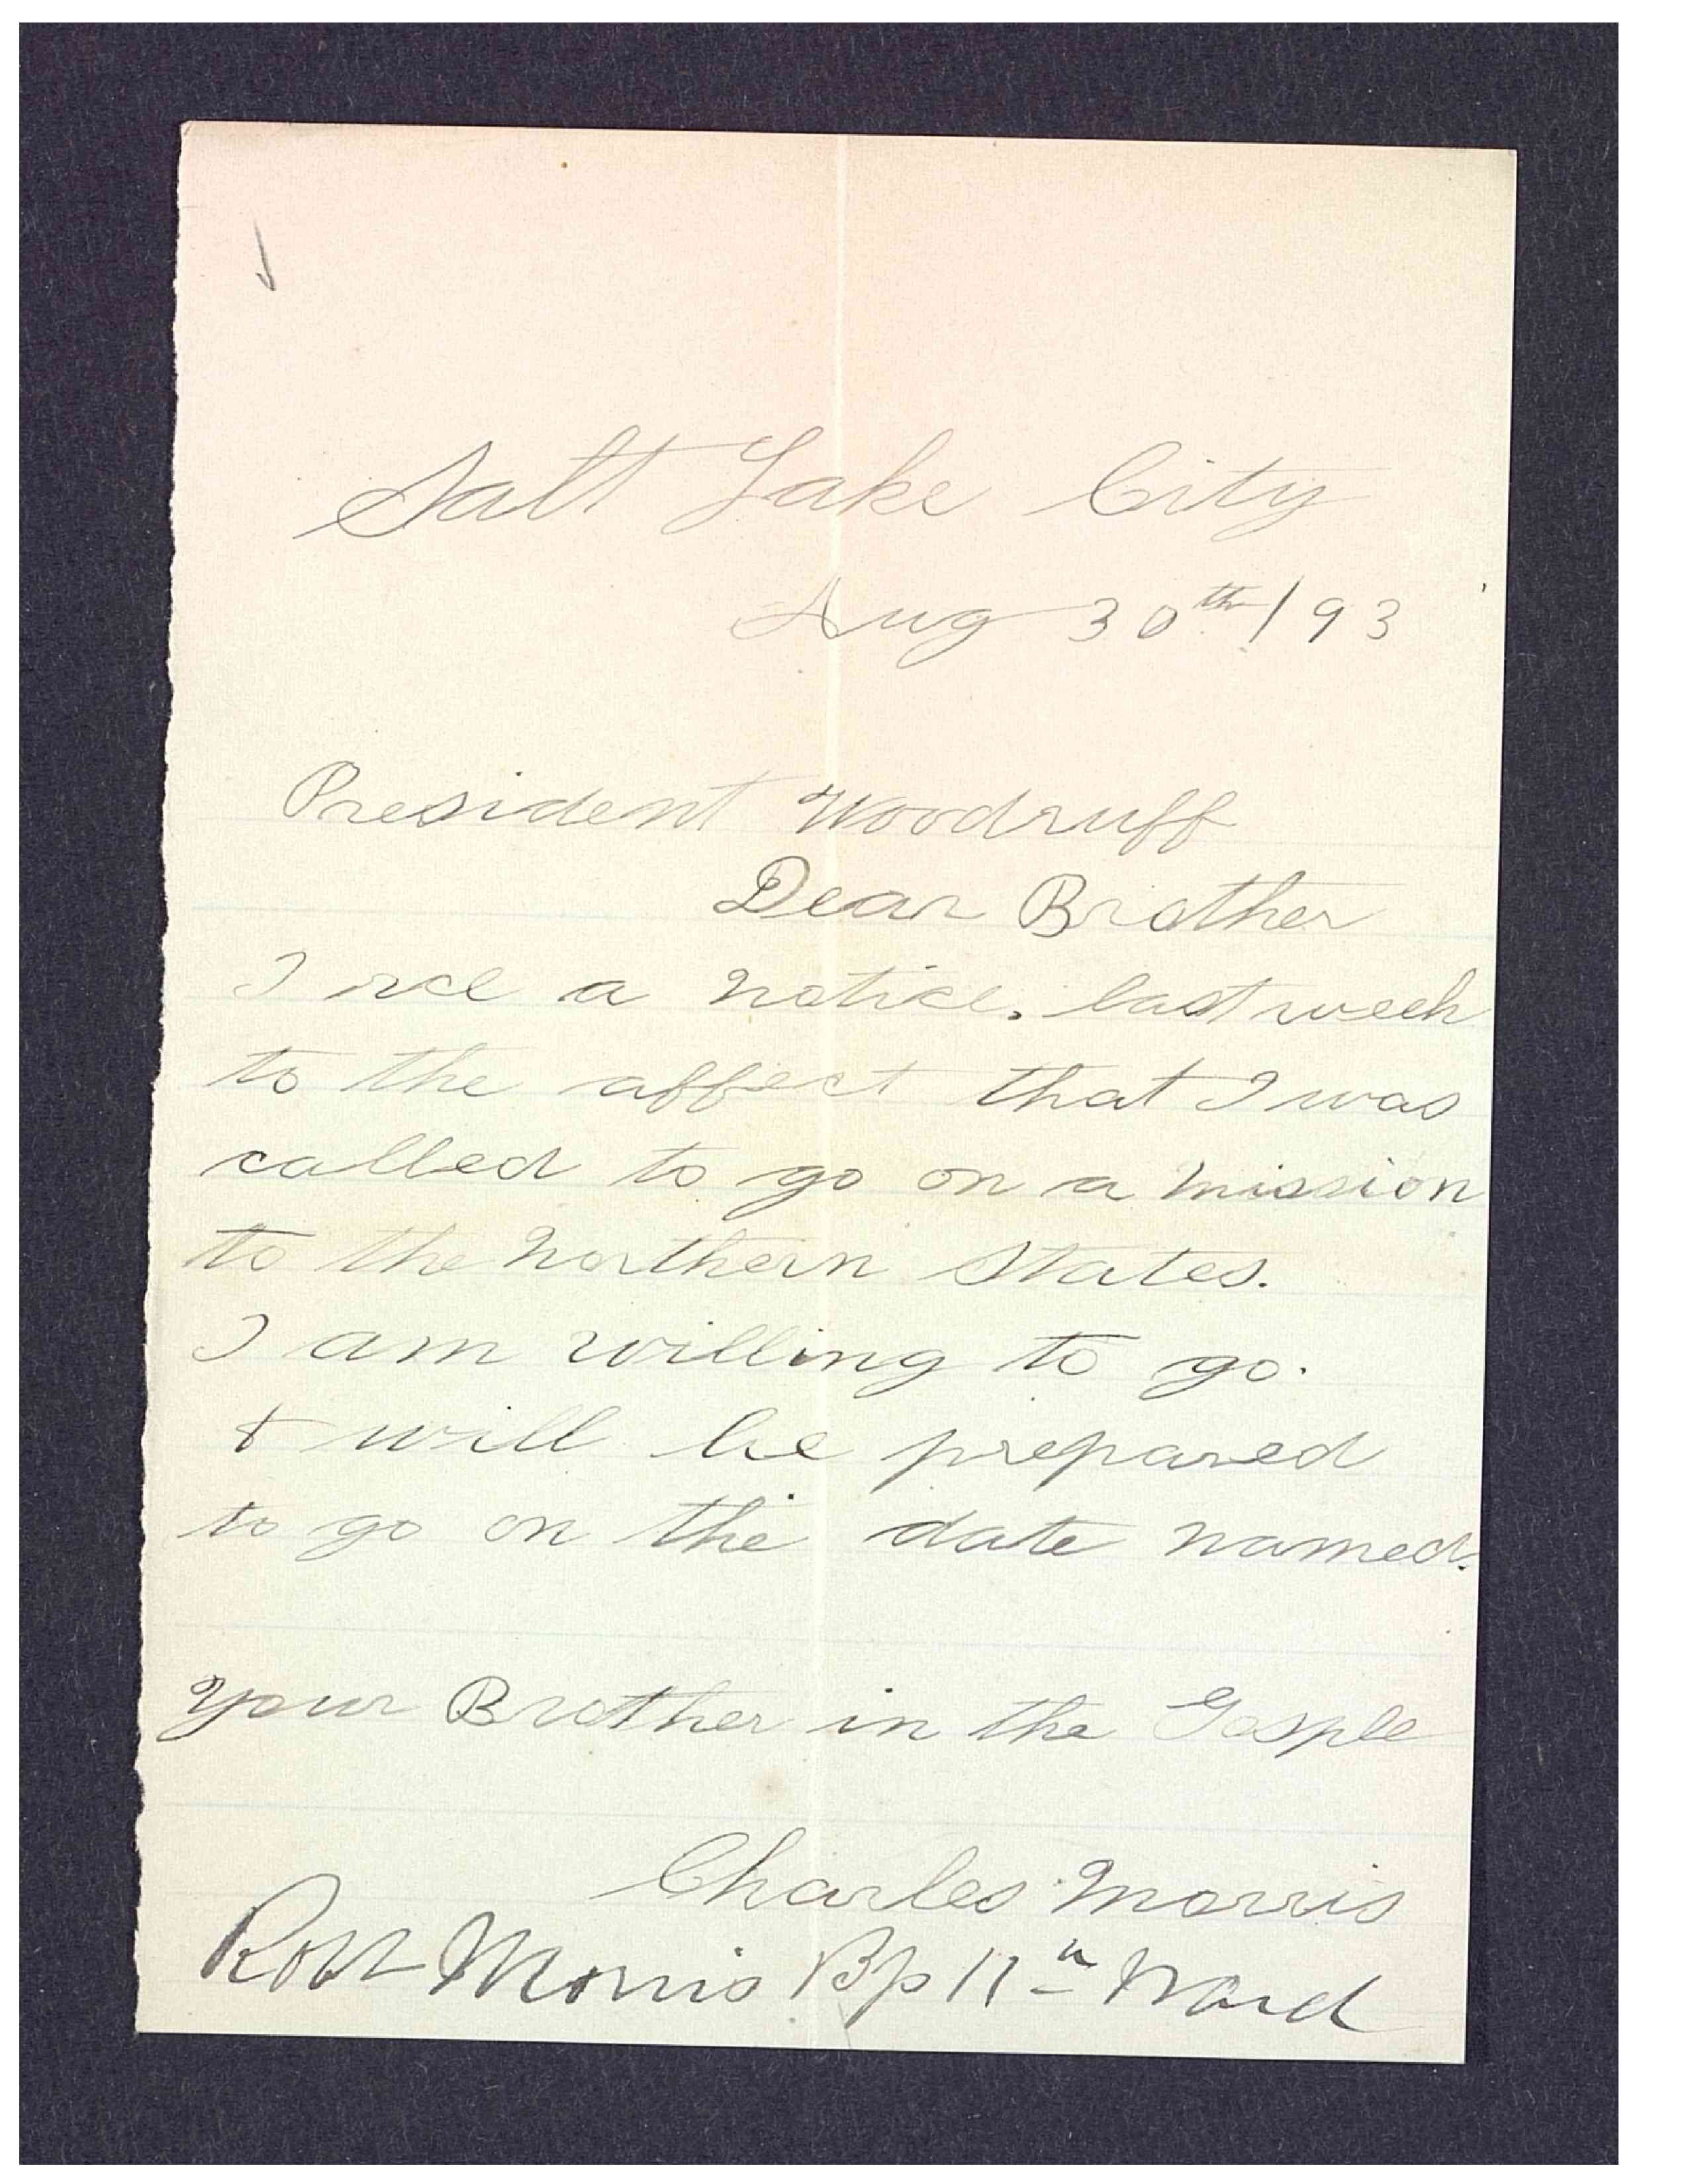 Salt Lake City
Aug 30th/93
President Woodruff
Dear Brother
I rce a notice. last week
to the affect that I was
called to go on a mission
to the Northern States.
I am willing to go.
& will be prepared
to go on the date named.
Your Brother in the Gosple
Charles Morris
Robt Morris Bp 11th Ward